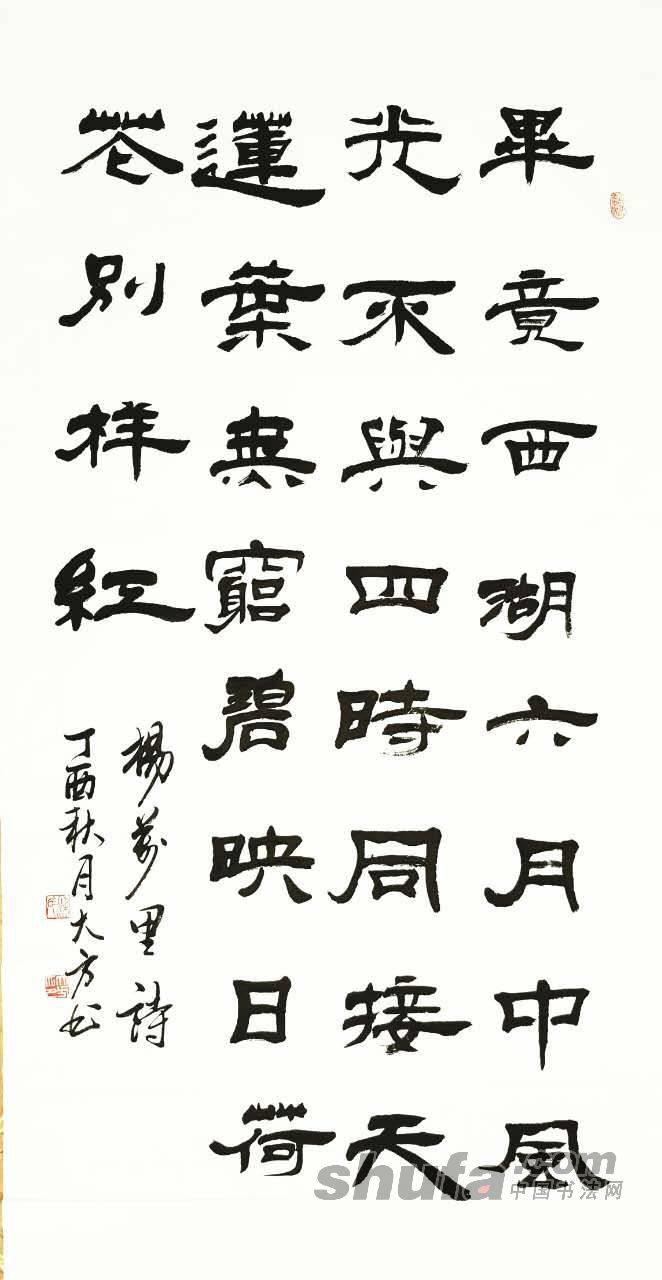 畢竟西湖六月中風
光不與四時同接天
蓮葉無窮碧映日荷
花別样紅
楊萬里詩
丁酉秋月大方书
shufa.com
中国书法网